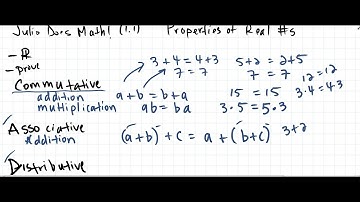 Julio Does Math! (1.1) Properties of Real #s
- R
- prove
3 + 4 = 4 + 3
7 = 7
5 + 2 = 2 + 5
7 = 7
12 = 12
3·4 = 4·3
Commutative
addition a + b = b + a
multiplication ab = ba
15 = 15
3·5 = 5·3
Associative
Addition (a + b) + c = a + (b + c) 3 + 2
Distributive